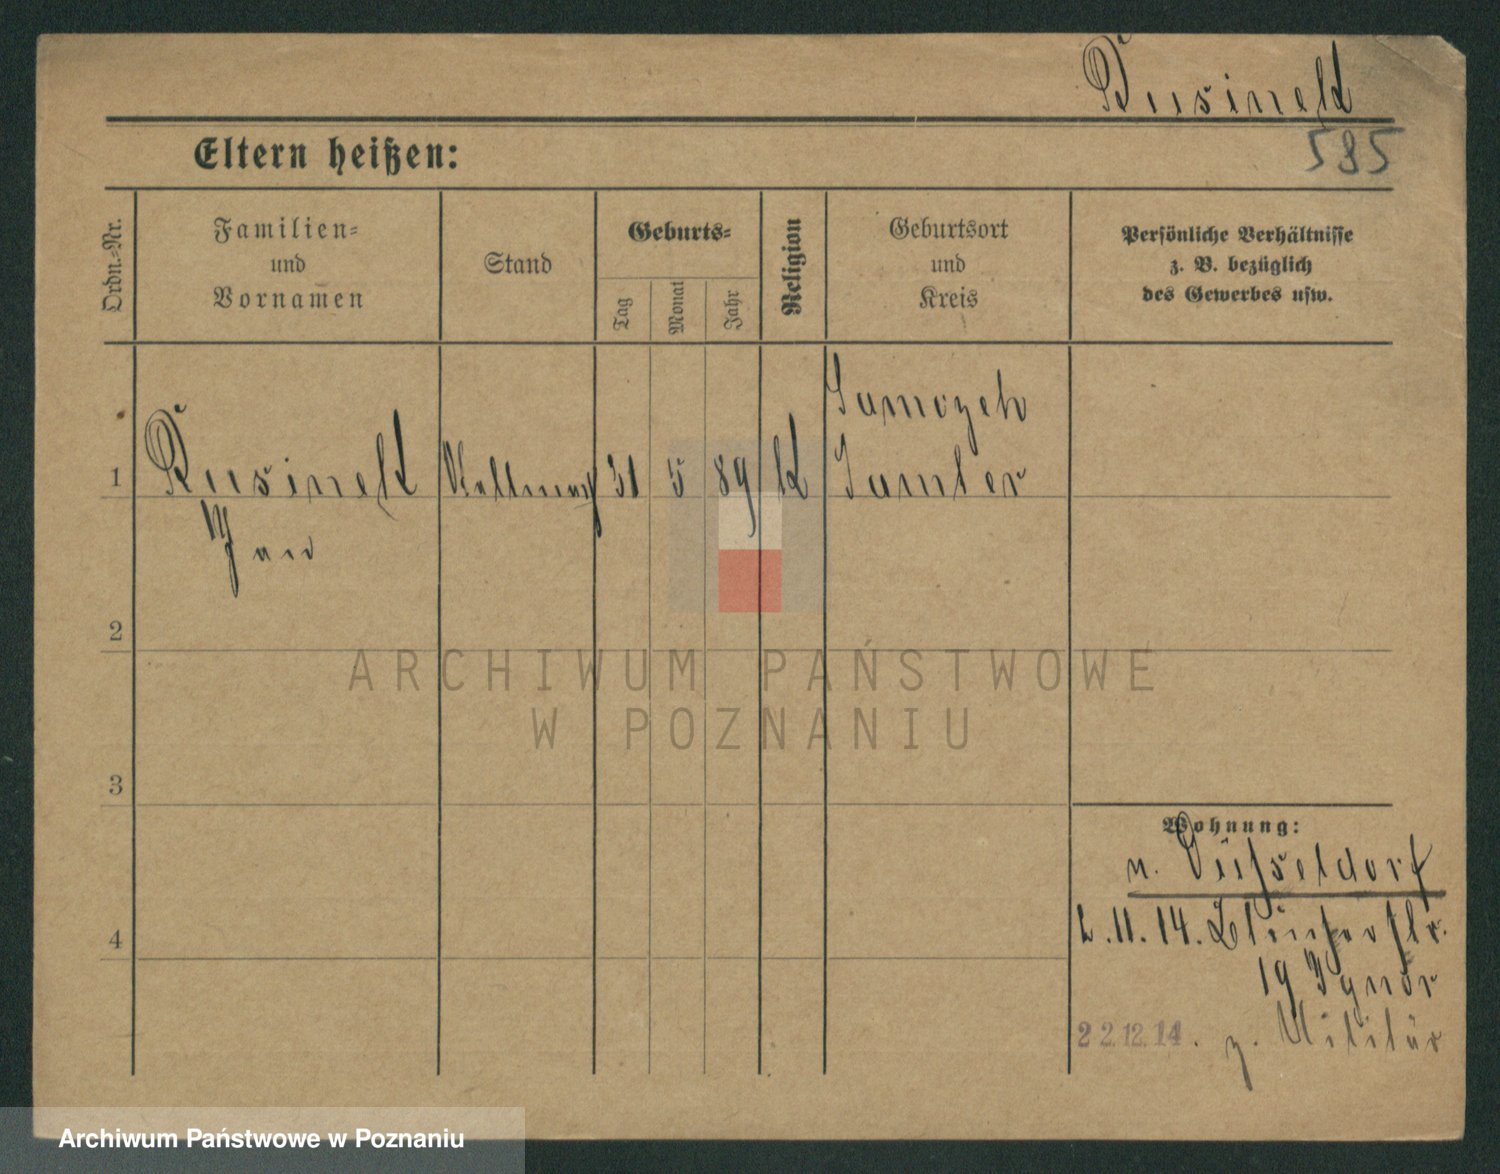 Businek
585
Eltern heißen:
Ordn.-Nr.
Familien-
und
Vornamen
Stand
Geburts-
Tag
Monat
Jahr
Religion
Geburtsort
und
Kreis
Persönliche Verhältnisse
z. B. bezüglich
des Gewerbes usw.
Samter
1 Businek 31 5 89 K
Jan
2
3
4
ARCHIWUM PAŃSTWOWE
W POZNANIU
Wohnung:
n. Düsseldorf
2.11.14.
19
22.12.14. z. Militär
Archiwum Państwowe w Poznaniu